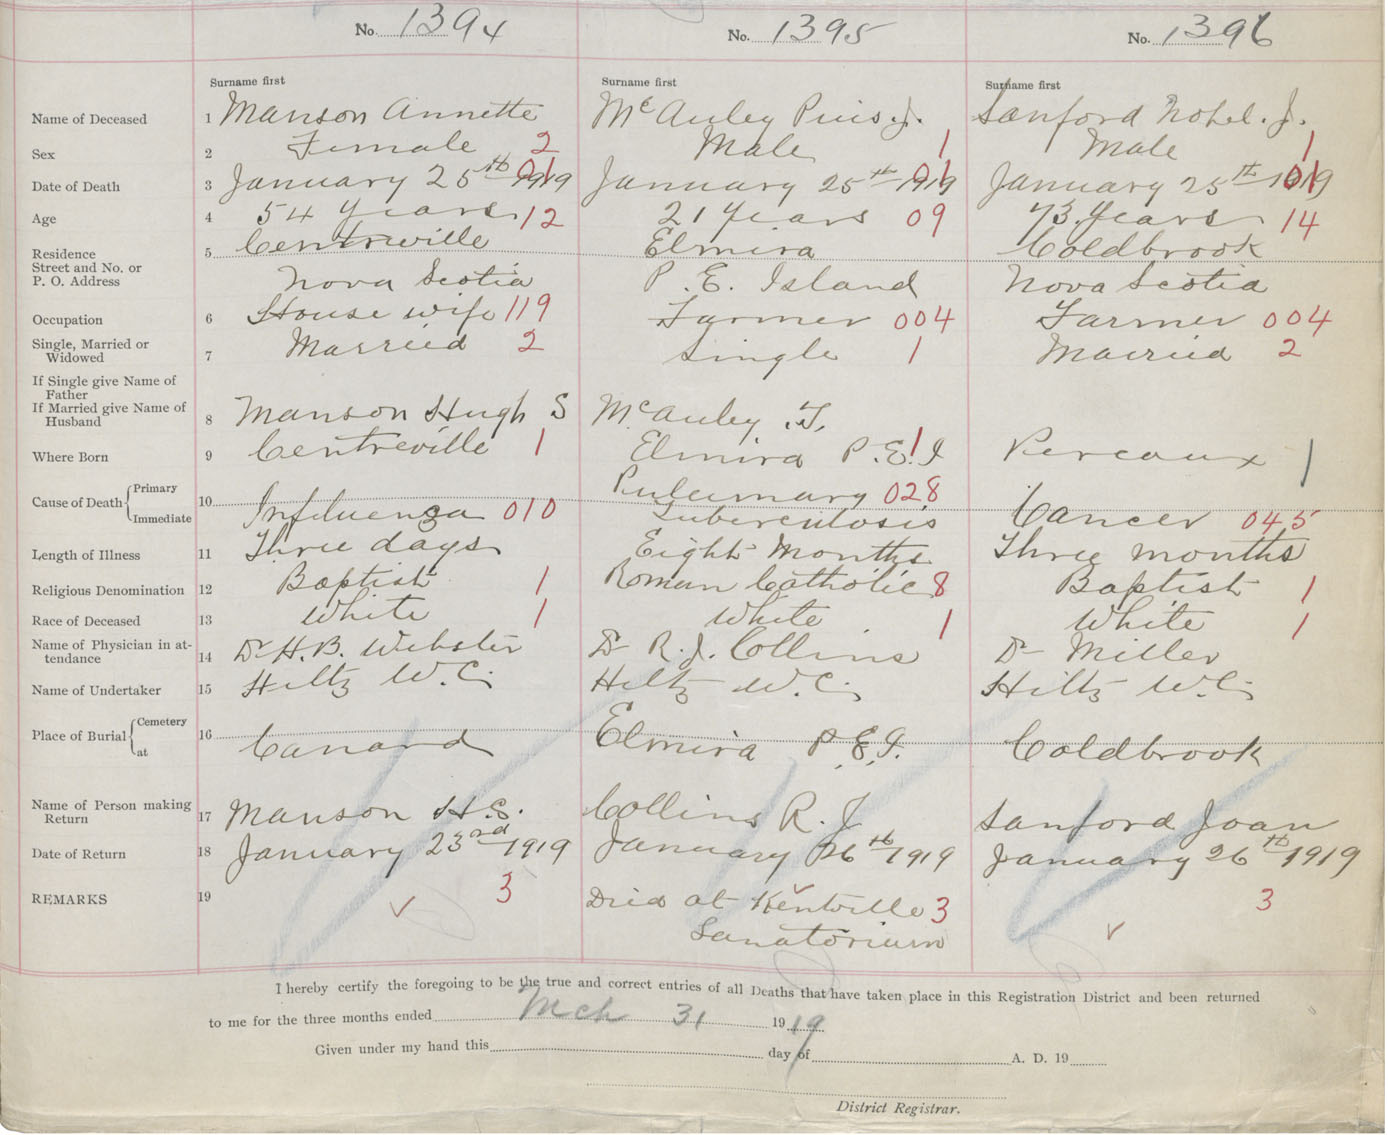 No. 1394 No. 1395 No. 1396
Surname first Surname first Surname first
Name of Deceased 1 Manson Annette McAuley Pius. J. Sanford Nohel. J.
Sex 2 Female 2 Male 1 Male 1
Date of Death 3 January 25th 1919 01 January 25th 1919 01 January 25th 1919 01
Age 4 54 Years 12 21 Years 09 73 Years 14
Residence 5 Centreville Elmira Coldbrook
Street and No. or
P. O. Address Nova Scotia P. E. Island Nova Scotia
Occupation 6 House wife 119 Farmer 004 Farmer 004
Single, Married or
Widowed 7 Married 2 Single 1 Married 2
If Single give Name of
Father
If Married give Name of
Husband 8 Manson Hugh S McAuley . F.
Where Born 9 Centreville 1 Elmira P.E.I 1 Pereaux 1
Cause of Death Primary 10 Pulumnary 028
Immediate Influenza 010 Tuberculosis Cancer 045
Length of Illness 11 Three days Eight Months Three months
Religious Denomination 12 Baptist 1 Roman Catholic 8 Baptist 1
Race of Deceased 13 White 1 White 1 White 1
Name of Physician in at-
tendance 14 Dr H. B. Webster Dr R. J. Collins Dr Miller
Name of Undertaker 15 Hiltz W. C. Hiltz W. C. Hiltz W. C.
Place of Burial Cemetery 16
at Canard Elmira P.E.I. Coldbrook
Name of Person making
Return 17 Manson H. S. Collins R. J Sanford Joan
Date of Return 18 January 23rd 1919 January 26th 1919 January 26th 1919
REMARKS 19 3 Died at Kentville 3 3
Sanatorium
I hereby certify the foregoing to be the true and correct entries of all Deaths that have taken place in this Registration District and been returned
to me for the three months ended Mch 31 1919
Given under my hand this day of A. D. 19
District Registrar.